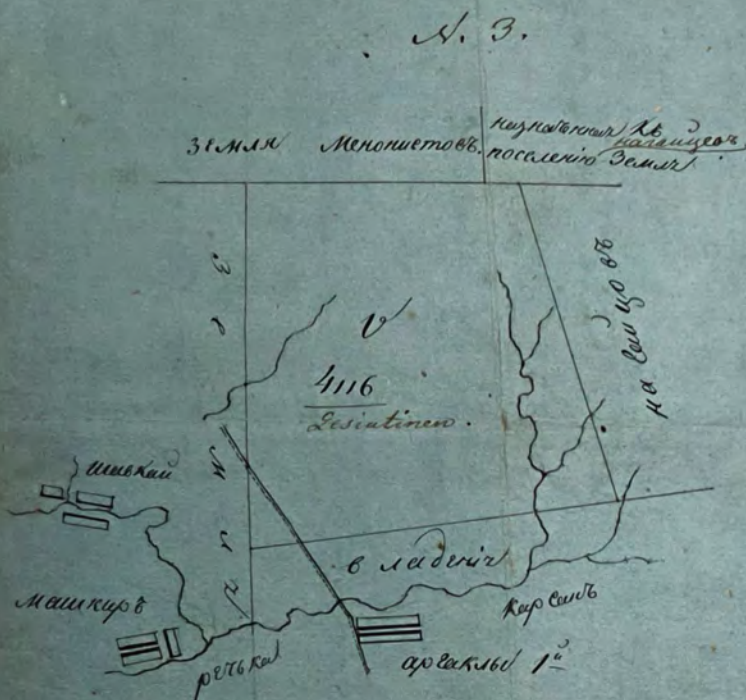 N. 3.
Земля Менонистовъ.
назначенная къ
нагайцовъ
поселенію Земля
Земля
V
4116
Desiatinen.
нагайцовъ
шавкай
владенія
Машкиръ
Карсакъ
речька
аргаклы 1й